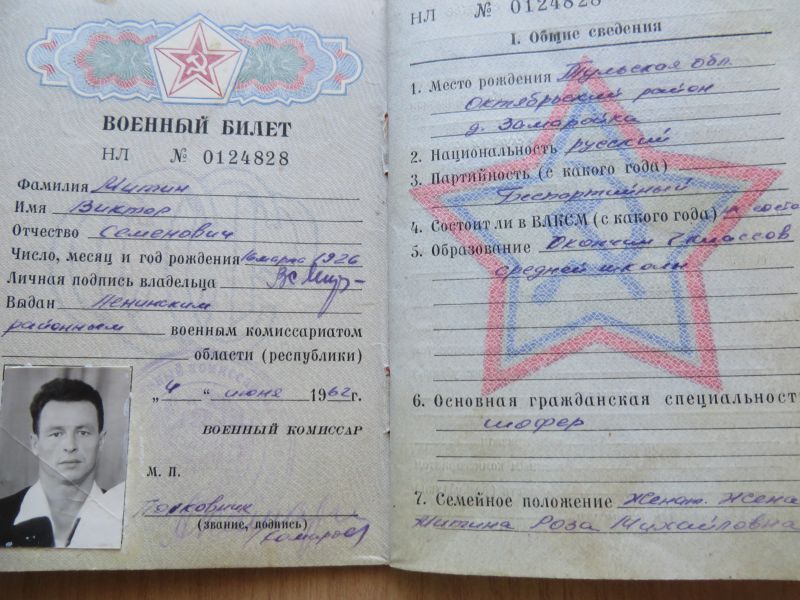 ВОЕННЫЙ БИЛЕТ
НЛ № 0124828
Фамилия Митин
Имя Виктор
Отчество Семенович
Число, месяц и год рождения 16 марта 1926
Личная подпись владельца
Выдан Ленинским
районным военным комиссариатом
области (республики)
„4“ июня 1962 г.
ВОЕННЫЙ КОМИССАР
М. П.
Полковник
(звание, подпись)
НЛ № 0124828
I. Общие сведения
1. Место рождения Тульская обл.
Октябрьский район
д. Замарайка
2. Национальность русский
3. Партийность (с какого года)
Беспартийный
4. Состоит ли в ВЛКСМ (с какого года) не состо
5. Образование Окончил 7 классов
средней школы
6. Основная гражданская специальност
шофер
7. Семейное положение Женат. Жена
Митина Роза Михайловна